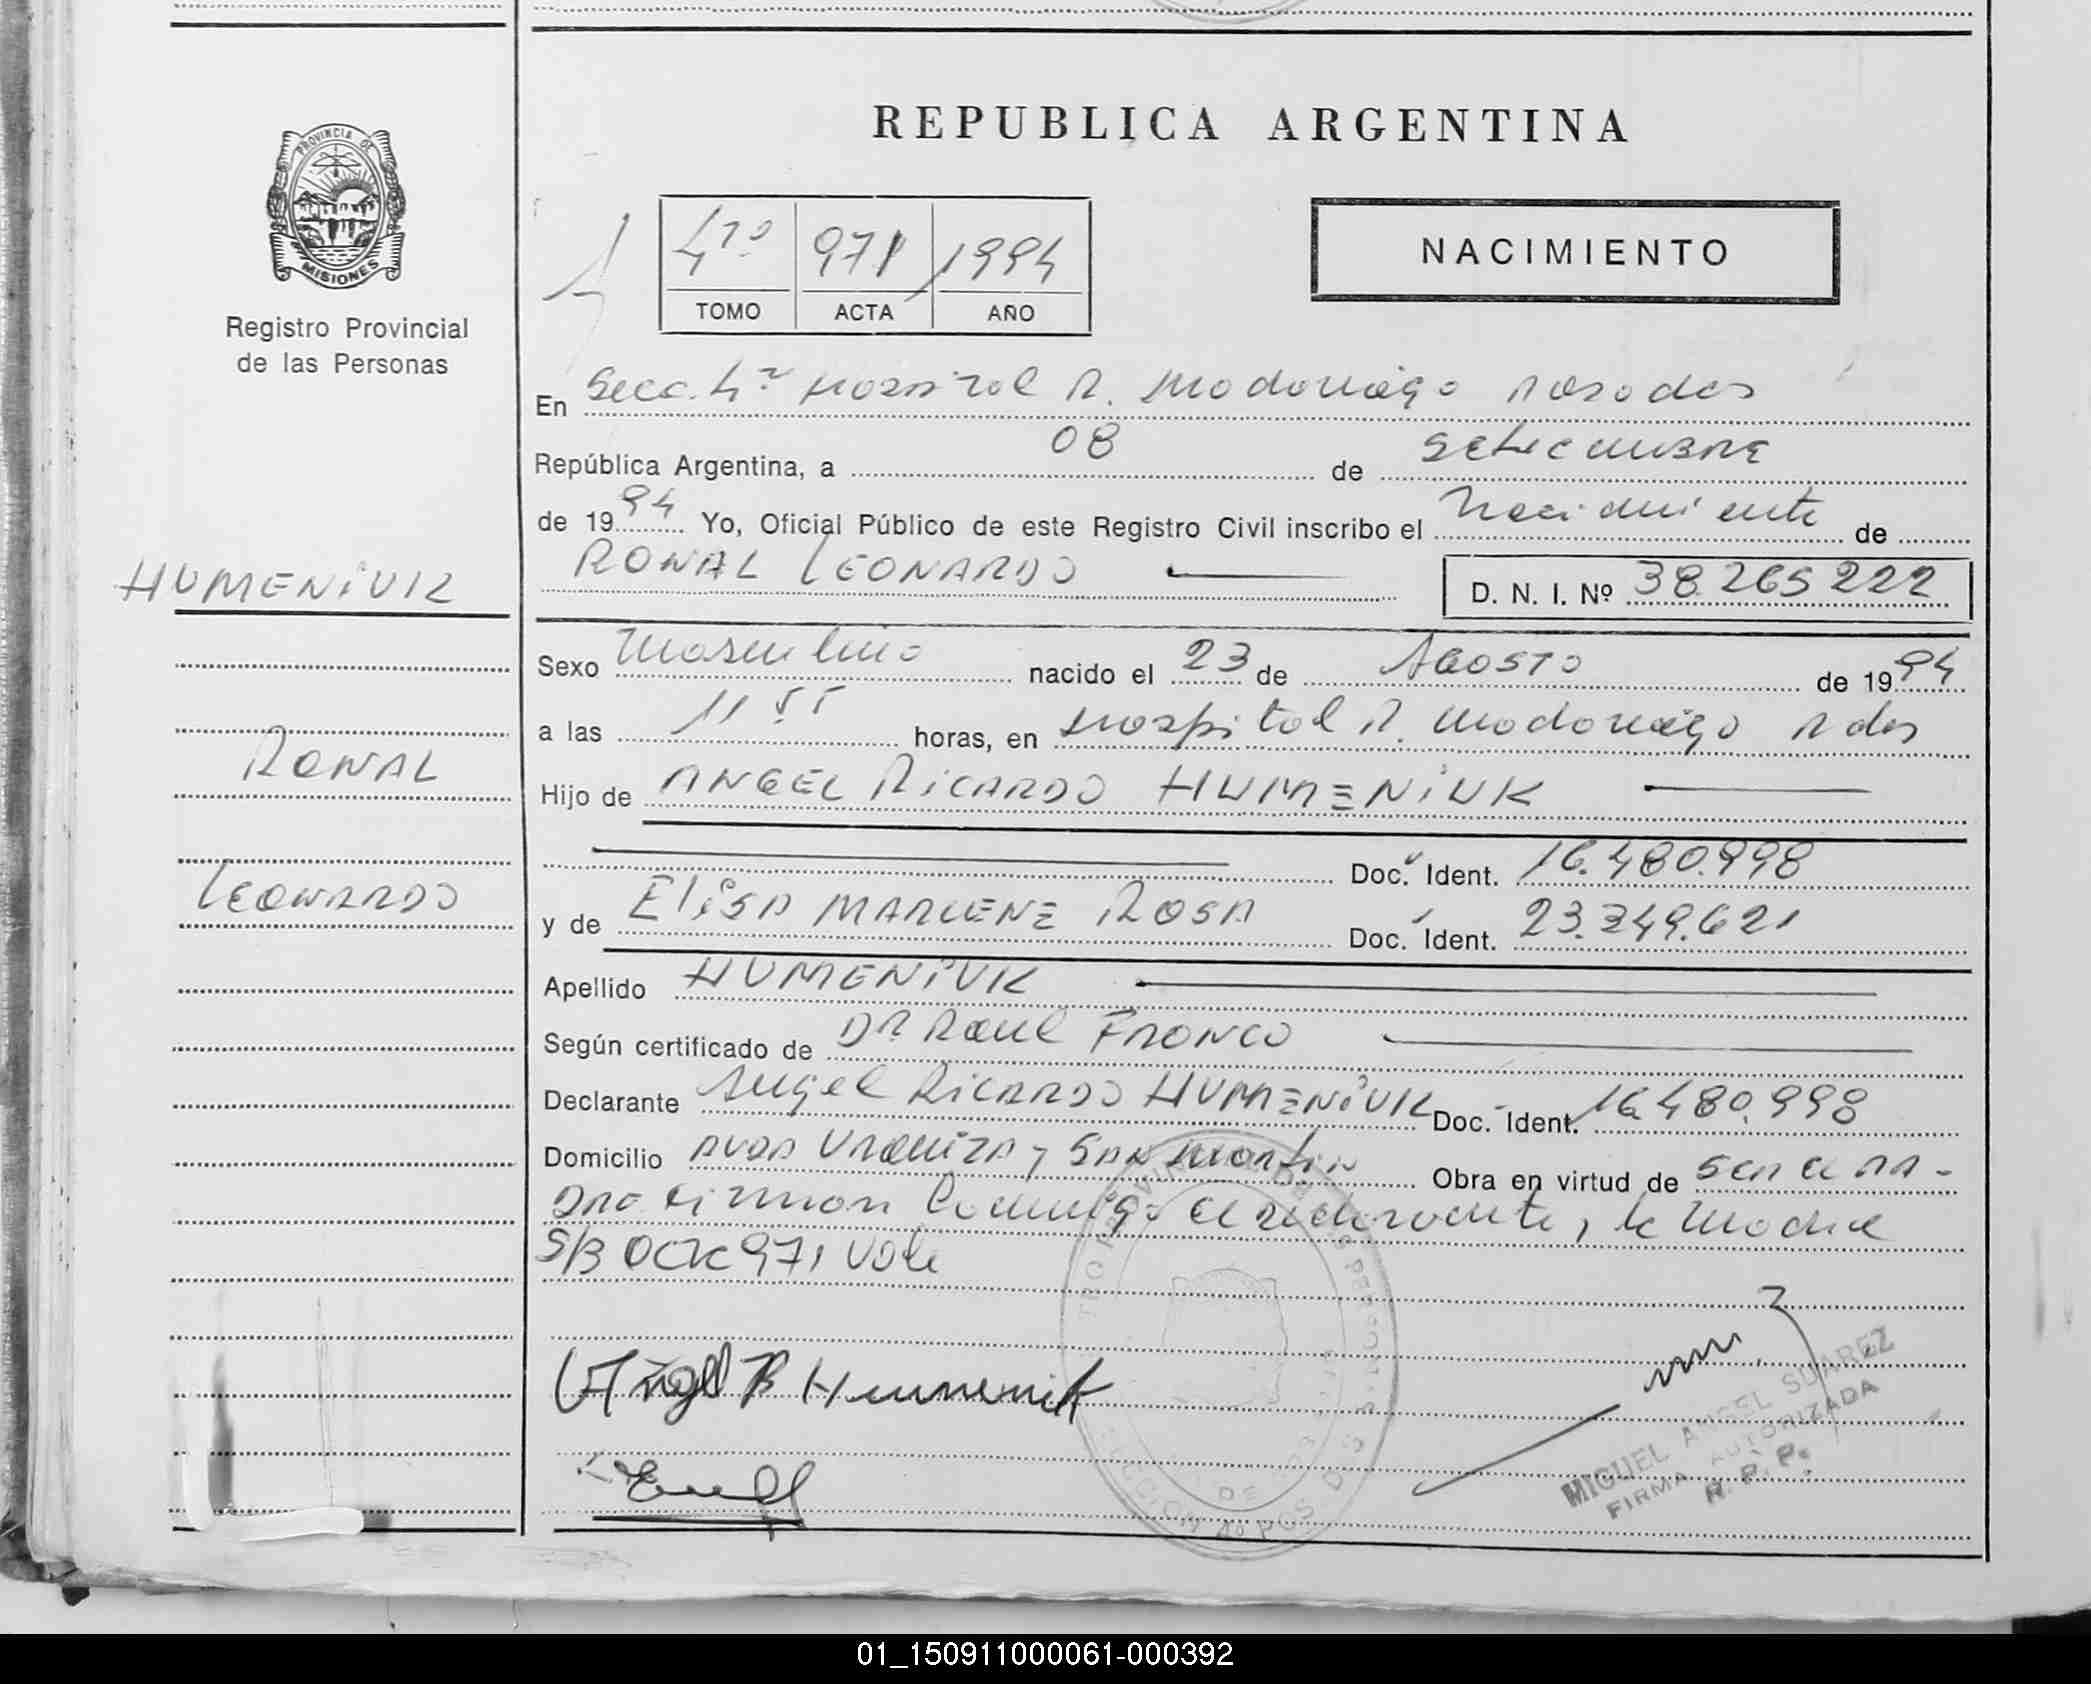 REPUBLICA ARGENTINA
PROVINCIA DE
MISIONES
Registro Provincial
de las Personas
4to 971 1994
TOMO ACTA AÑO
NACIMIENTO
En Secc. 4ta Hospital R. Madariaga Posadas
República Argentina, a 08 de Setiembre
de 1994 Yo, Oficial Público de este Registro Civil inscribo el Nacimiento de
RONAL LEONARDO D. N. I. Nº 38.265222
HUMENiUK
Sexo Masculino nacido el 23 de AGOSTO de 1994
a las 11 55 horas, en Hospital R. Madariaga Pdas
RONAL
Hijo de ANGEL RiCARDO HUMENiUK
Doc. Ident. 16.480.998
LEONARDO
y de EliSA MARLENE ROSA Doc. Ident. 23.249.621
Apellido HUMENiUK
Según certificado de DR RAUL FRANCO
Declarante Angel RiCARDO HUMENiUK Doc. Ident. 16.480.998
Domicilio AVDA URQUIZA y SAN Martin Obra en virtud de ser el PA-
DRE Firman Conmigo el declarante, la Madre
S/B 971 Vale
Angel R Humeniuk
MIGUEL ANGEL SUAREZ
FIRMA AUTORIZADA
R. P. P.
01_150911000061-000392